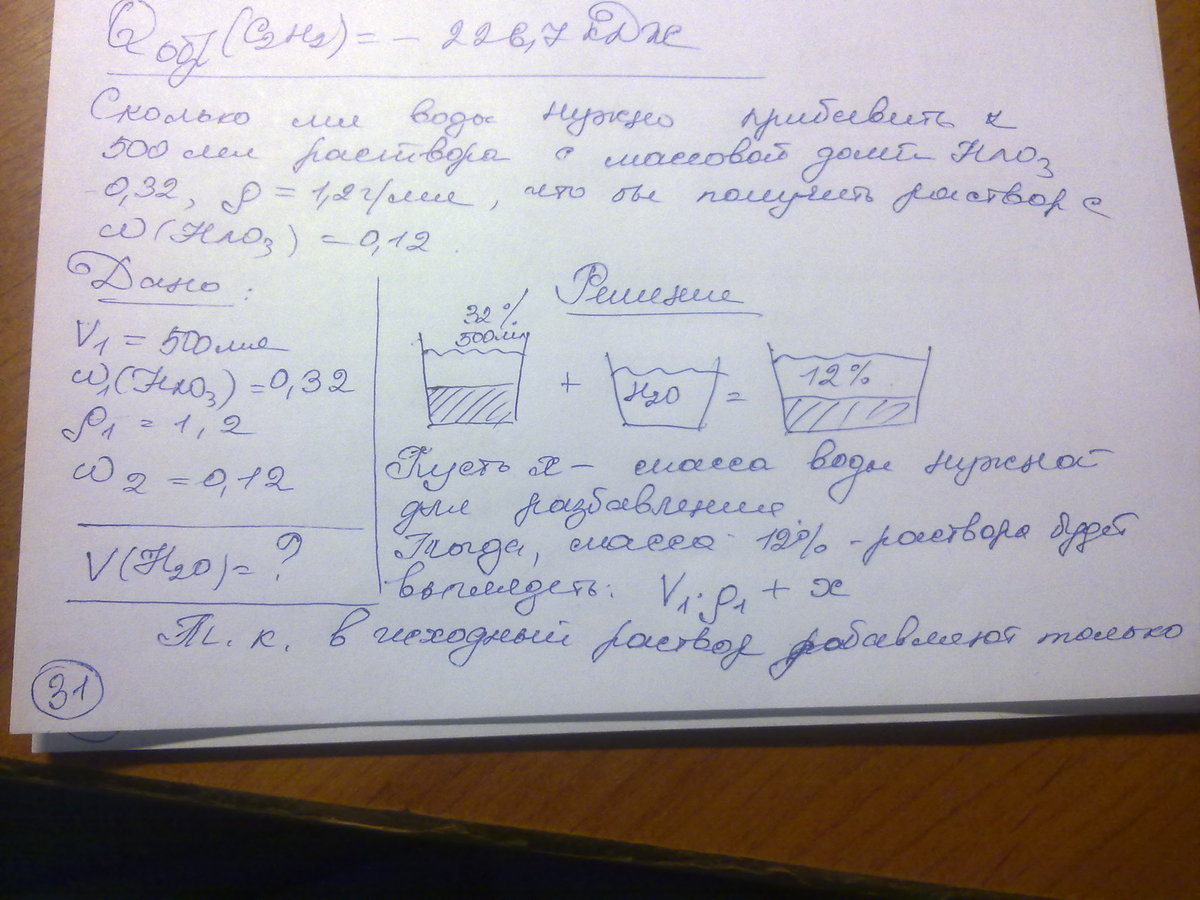 Qобр(C2H2) = - 226,7 кДж
Сколько мл воды нужно прибавить к
500 мл раствора с массовой долей HNO3
0,32, ρ = 1,2 г/мл, что бы получить раствор с
ω(HNO3) = 0,12.
Дано:
Решение
V1 = 500 мл
ω1(HNO3) = 0,32
ρ1 = 1,2
ω2 = 0,12
V(H2O) = ?
32%
500мл
+ H2O = 12%
Пусть x - масса воды нужной
для разбавления
Тогда, масса 12% - раствора будет
выглядеть: V1·ρ1 + x
Т. к. в исходный раствор добавляют только
31